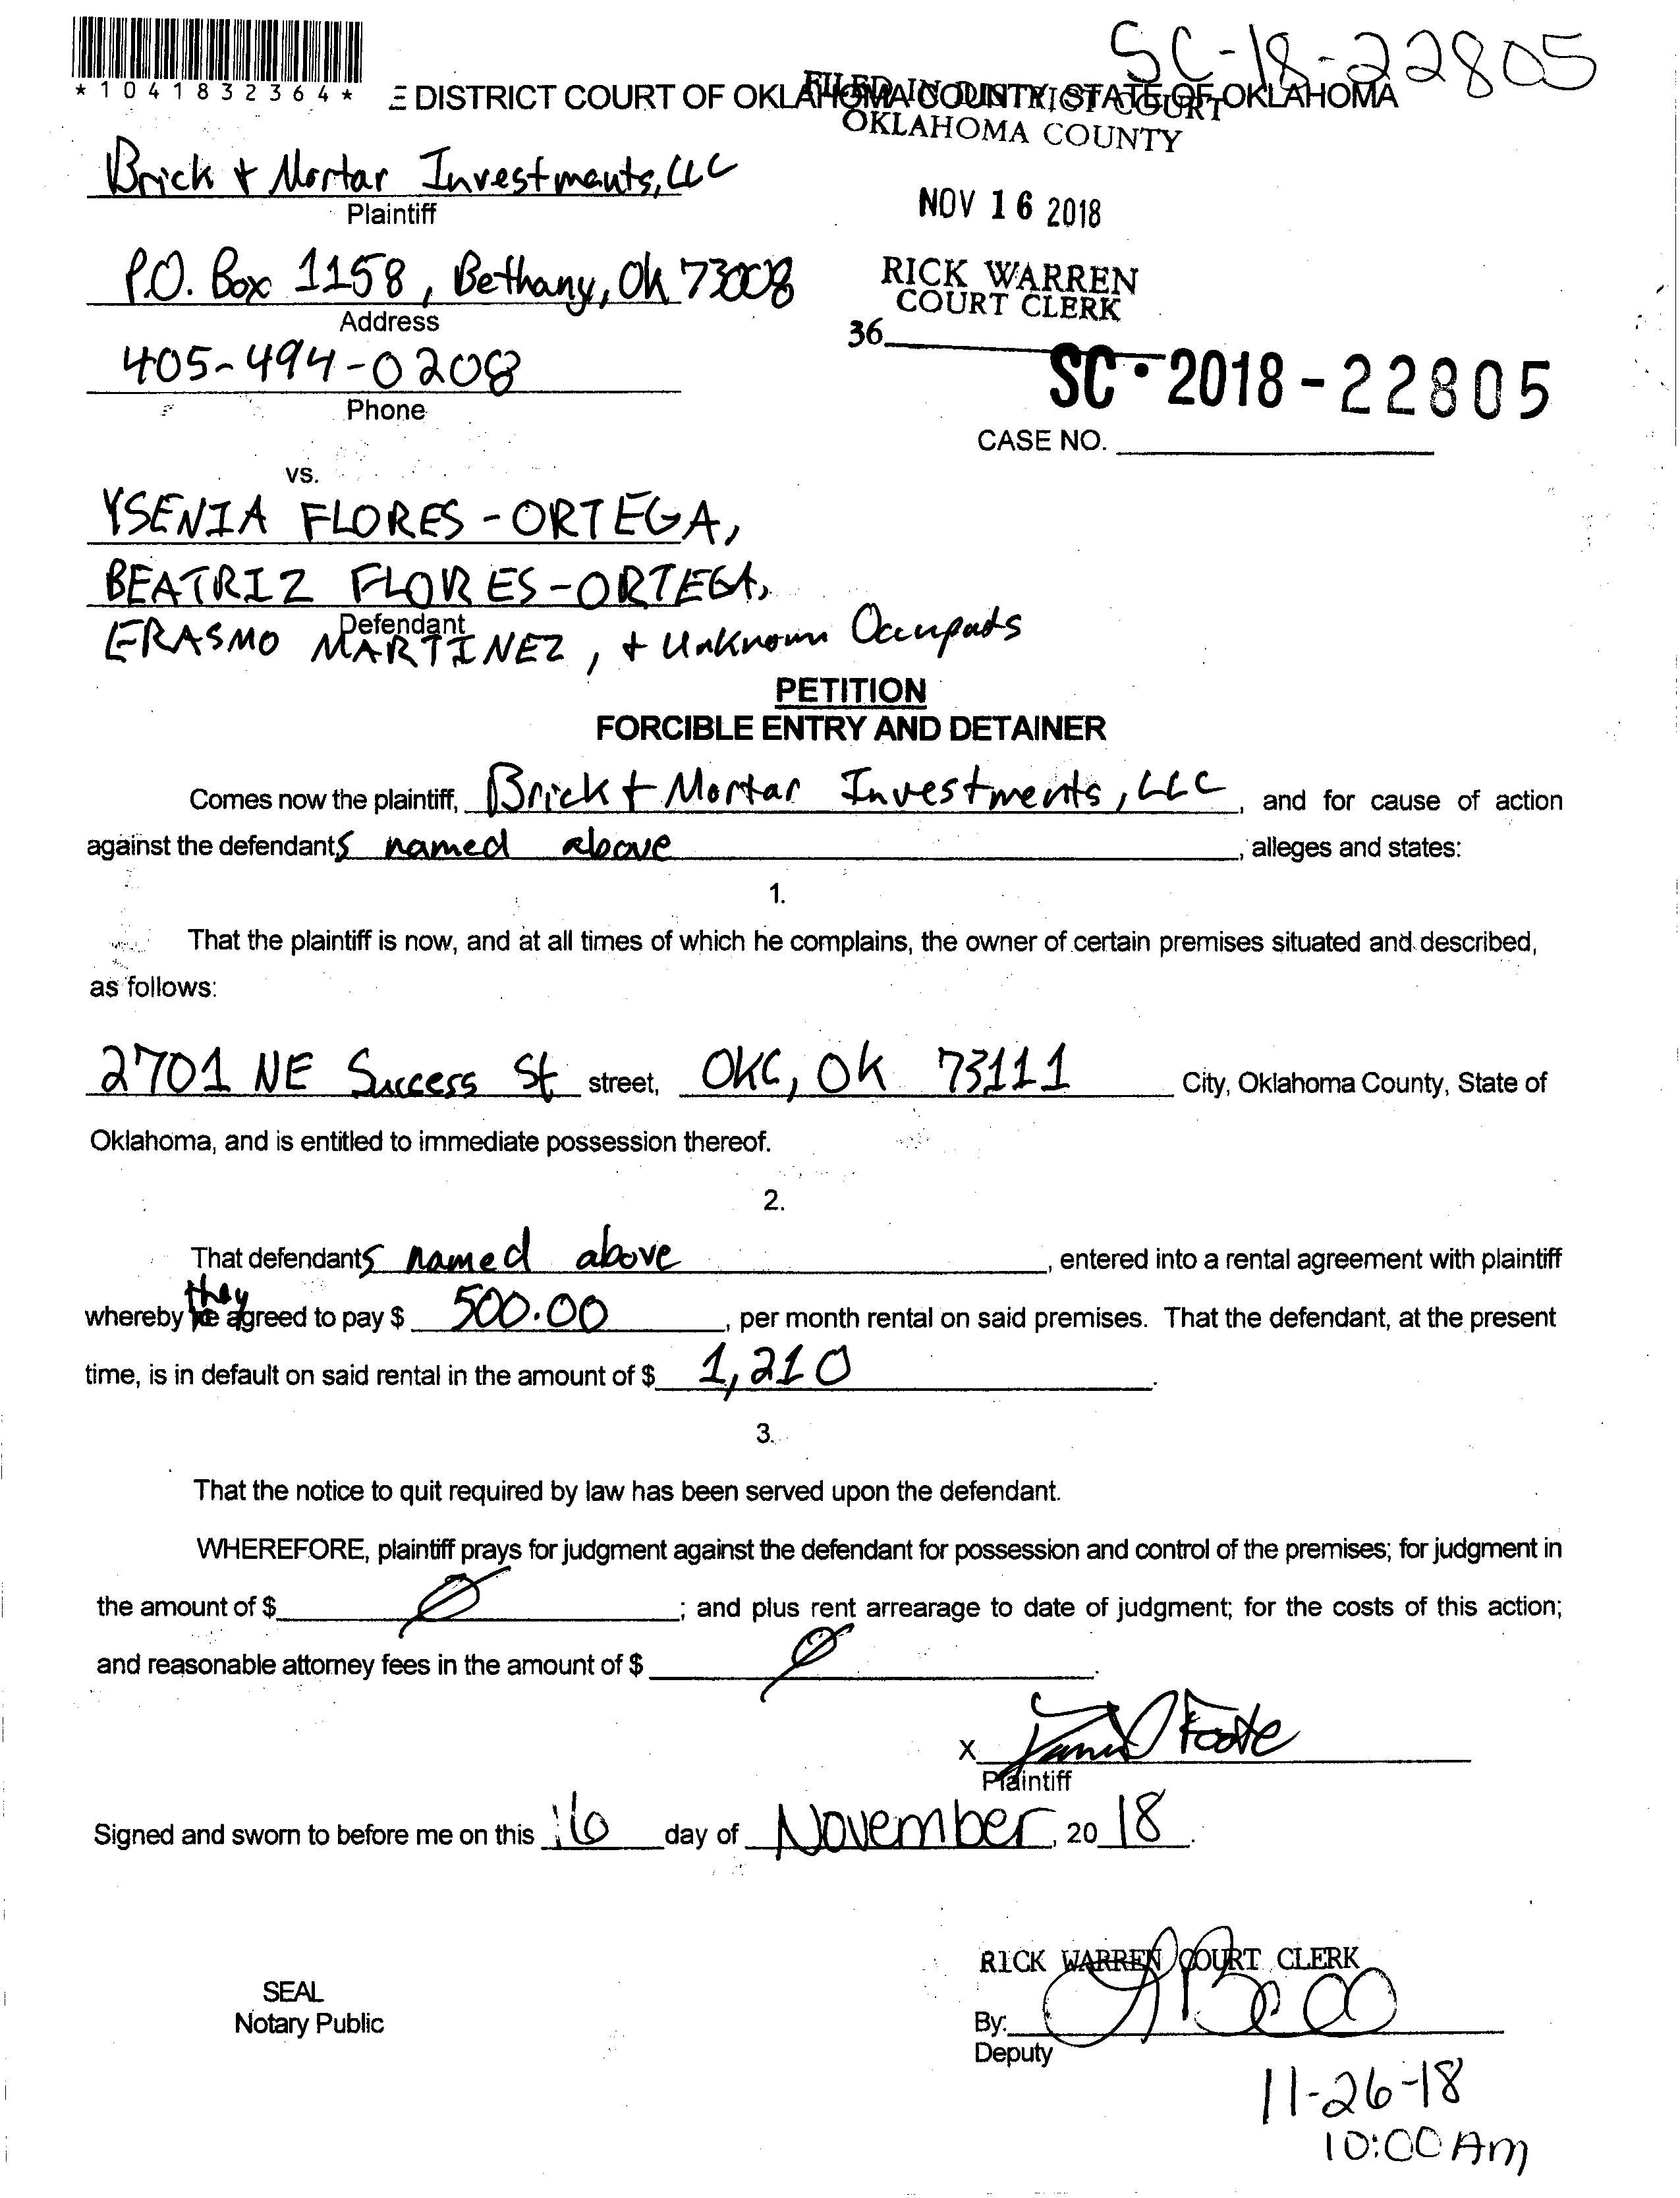 SC-18-22805
*1041832364*
E DISTRICT COURT OF OKLAHOMA COUNTY, STATE OF OKLAHOMA
FILED IN DISTRICT COURT
OKLAHOMA COUNTY
Brick + Mortar Investments, LLC
Plaintiff
NOV 16 2018
P.O. Box 1158, Bethany, Ok 73008
Address
RICK WARREN
COURT CLERK
36
405-494-0208
Phone
SC-2018-22805
CASE NO.
vs.
YSENIA FLORES-ORTEGA,
BEATRIZ FLORES-ORTEGA,
Defendant
ERASMO MARTINEZ, + Unknown Occupants
PETITION
FORCIBLE ENTRY AND DETAINER
Comes now the plaintiff, Brick + Mortar Investments, LLC, and for cause of action
against the defendants named above, alleges and states:
1.
That the plaintiff is now, and at all times of which he complains, the owner of certain premises situated and described,
as follows:
2701 NE Success St street, OKC, OK 73111 City, Oklahoma County, State of
Oklahoma, and is entitled to immediate possession thereof.
2.
That defendants named above, entered into a rental agreement with plaintiff
whereby they agreed to pay $ 500.00, per month rental on said premises. That the defendant, at the present
time, is in default on said rental in the amount of $ 1,210.
3.
That the notice to quit required by law has been served upon the defendant.
WHEREFORE, plaintiff prays for judgment against the defendant for possession and control of the premises; for judgment in
the amount of $ Ø; and plus rent arrearage to date of judgment; for the costs of this action;
and reasonable attorney fees in the amount of $ Ø.
X Foote
Plaintiff
Signed and sworn to before me on this 16 day of November, 2018.
RICK WARREN COURT CLERK
SEAL
Notary Public
By:
Deputy
11-26-18
10:00 Am